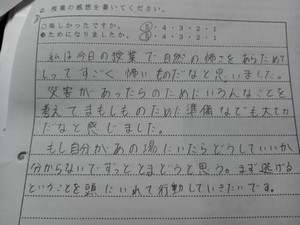 2 授業の感想を書いてください。
○楽しかったですか。 5・4・3・2・1
○ためになりましたか。 5・4・3・2・1
私は今日の授業で自然の怖さをあらためて
しってすごく怖いものだなと思いました。
災害があったらのためにいろんなことを
考えてまもしものために準備なども大てか
だなと感じました。
もし自分があの場にいたらどうしていいか
分からないでずっととまどうと思う。まず逃げる
ということを頭にいれて行動していきたいです。